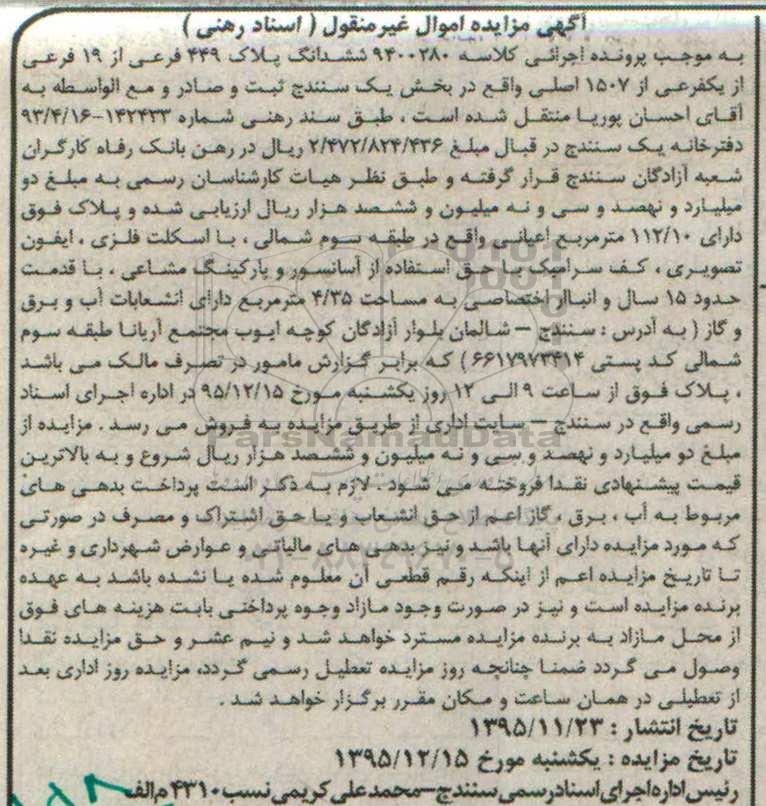 آگهی مزایده اموال غیرمنقول ( اسناد رهنی )
به موجب پرونده اجرائی کلاسه ۹۴۰۰۲۸۰ ششدانگ پلاک ۴۴۹ فرعی از ۱۹ فرعی
از یکفرعی از ۱۵۰۷ اصلی واقع در بخش یک سنندج ثبت و صادر و مع الواسطه به
آقای احسان پوریا منتقل شده است ، طبق سند رهنی شماره ۱۴۲۴۳۳-۹۳/۴/۱۶
دفترخانه یک سنندج در قبال مبلغ ۲/۴۷۲/۸۲۴/۴۳۶ ریال در رهن بانک رفاه کارگران
شعبه آزادگان سنندج قرار گرفته و طبق نظر هیات کارشناسان رسمی به مبلغ دو
میلیارد و نهصد و سی و نه میلیون و ششصد هزار ریال ارزیابی شده و پلاک فوق
دارای ۱۱۲/۱۰ مترمربع اعیانی واقع در طبقه سوم شمالی ، با اسکلت فلزی ، ایفون
تصویری ، کف سرامیک با حق استفاده از آسانسور و پارکینگ مشاعی ، با قدمت
حدود ۱۵ سال و انبار اختصاصی به مساحت ۴/۳۵ مترمربع دارای انشعابات آب و برق
و گاز ( به آدرس : سنندج – شالمان بلوار آزادگان کوچه ایوب مجتمع آریانا طبقه سوم
شمالی کد پستی ۶۶۱۷۹۷۳۴۱۴ ) که برابر گزارش مامور در تصرف مالک می باشد
، پلاک فوق از ساعت ۹ الی ۱۲ روز یکشنبه مورخ ۹۵/۱۲/۱۵ در اداره اجرای اسناد
رسمی واقع در سنندج – سایت اداری از طریق مزایده به فروش می رسد . مزایده از
مبلغ دو میلیارد و نهصد و سی و نه میلیون و ششصد هزار ریال شروع و به بالاترین
قیمت پیشنهادی نقدا فروخته می شود . لازم به ذکر است پرداخت بدهی های
مربوط به آب ، برق ، گاز اعم از حق انشعاب و یا حق اشتراک و مصرف در صورتی
که مورد مزایده دارای آنها باشد و نیز بدهی های مالیاتی و عوارض شهرداری و غیره
تا تاریخ مزایده اعم از اینکه رقم قطعی آن معلوم شده یا نشده باشد به عهده
برنده مزایده است و نیز در صورت وجود مازاد وجوه پرداختی بابت هزینه های فوق
از محل مازاد به برنده مزایده مسترد خواهد شد و نیم عشر و حق مزایده نقدا
وصول می گردد ضمنا چنانچه روز مزایده تعطیل رسمی گردد، مزایده روز اداری بعد
از تعطیلی در همان ساعت و مکان مقرر برگزار خواهد شد .
تاریخ انتشار : ۱۳۹۵/۱۱/۲۳
تاریخ مزایده : یکشنبه مورخ ۱۳۹۵/۱۲/۱۵
رئیس اداره اجرای اسناد رسمی سنندج–محمدعلی کریمی نسب ۴۳۱۰ م الف
ParsNamadData